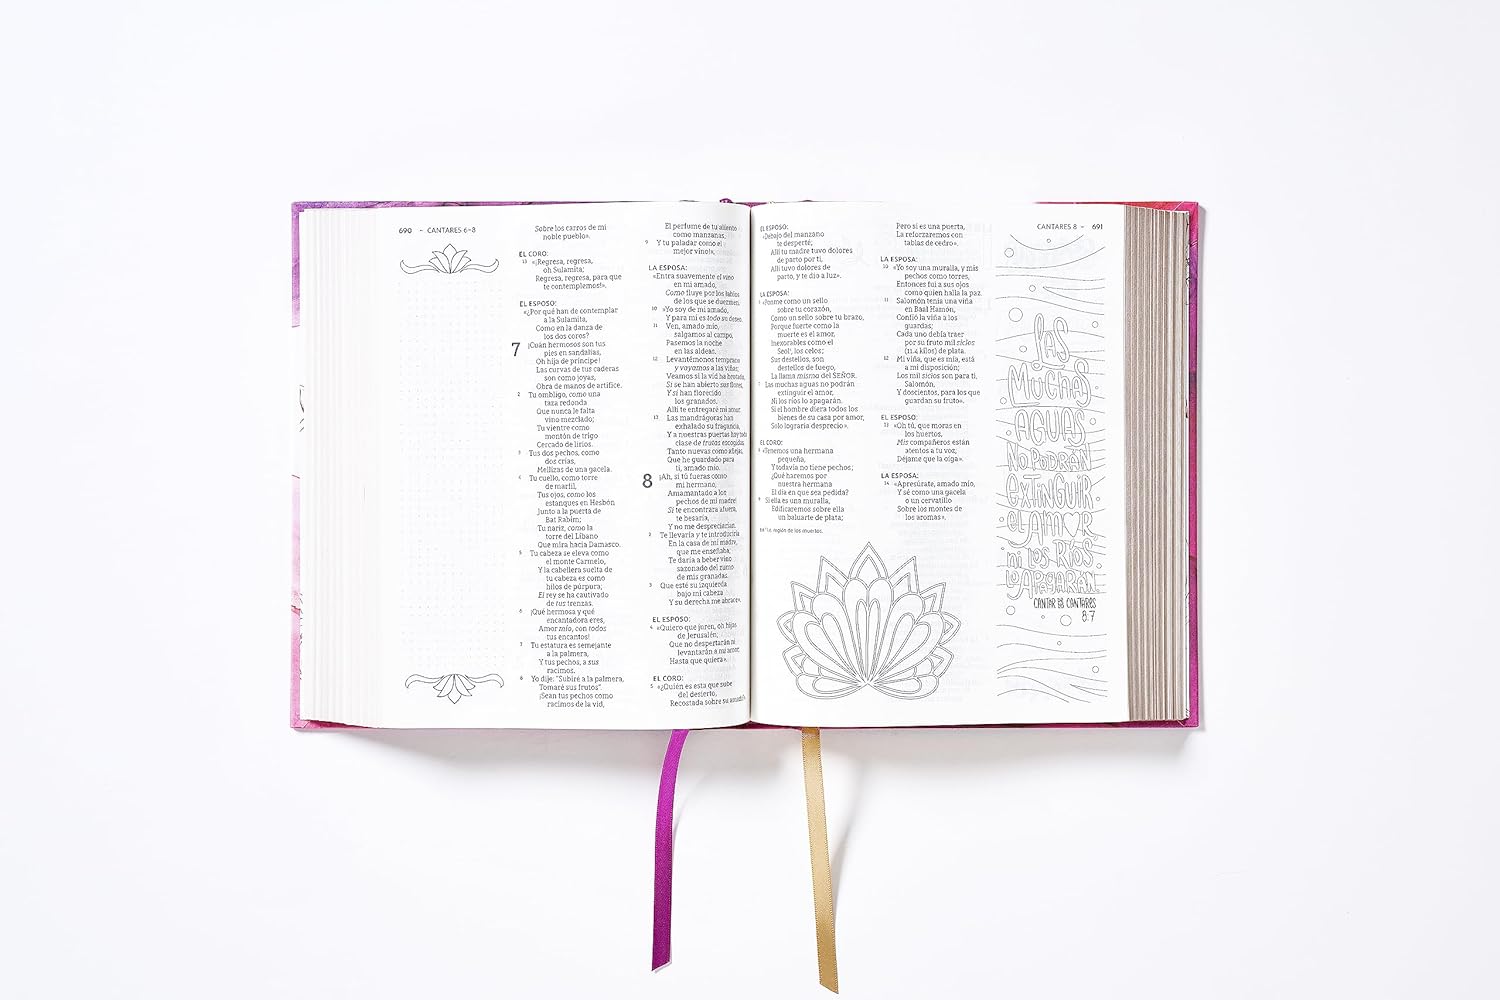 690 ~ CANTARES 6–8
Sobre los carros de mi
noble pueblo».
EL CORO:
13 «¡Regresa, regresa,
oh Sulamita;
Regresa, regresa, para que
te contemplemos!».
EL ESPOSO:
«¿Por qué han de contemplar
a la Sulamita,
Como en la danza de
los dos coros?
7 ¡Cuán hermosos son tus
pies en sandalias,
Oh hija de príncipe!
Las curvas de tus caderas
son como joyas,
Obra de manos de artífice.
2 Tu ombligo, como una
taza redonda
Que nunca le falta
vino mezclado;
Tu vientre como
montón de trigo
Cercado de lirios.
3 Tus dos pechos, como
dos crías,
Mellizas de una gacela.
4 Tu cuello, como torre
de marfil,
Tus ojos, como los
estanques en Hesbón
Junto a la puerta de
Bat Rabim;
Tu nariz, como la
torre del Líbano
Que mira hacia Damasco.
5 Tu cabeza se eleva como
el monte Carmelo,
Y la cabellera suelta de
tu cabeza es como
hilos de púrpura;
El rey se ha cautivado
de tus trenzas.
6 ¡Qué hermosa y qué
encantadora eres,
Amor mío, con todos
tus encantos!
7 Tu estatura es semejante
a la palmera,
Y tus pechos, a sus
racimos.
8 Yo dije: "Subiré a la palmera,
Tomaré sus frutos".
¡Sean tus pechos como
racimos de la vid,
El perfume de tu aliento
como manzanas,
9 Y tu paladar como el
mejor vino!».
LA ESPOSA:
«Entra suavemente el vino
en mi amado,
Como fluye por los labios
de los que se duermen.
10 »Yo soy de mi amado,
Y para mí es todo su deseo.
11 Ven, amado mío,
salgamos al campo,
Pasemos la noche
en las aldeas.
12 Levantémonos temprano
y vayamos a las viñas;
Veamos si la vid ha brotado,
Si se han abierto sus flores,
Y si han florecido
los granados.
Allí te entregaré mi amor.
13 Las mandrágoras han
exhalado su fragancia,
Y a nuestras puertas hay toda
clase de frutas escogidas,
Tanto nuevas como añejas,
Que he guardado para
ti, amado mío.
8 ¡Ah, si tú fueras como
mi hermano,
Amamantado a los
pechos de mi madre!
Si te encontrara afuera,
te besaría,
Y no me despreciarían.
2 Te llevaría y te introduciría
En la casa de mi madre,
que me enseñaba;
Te daría a beber vino
sazonado del zumo
de mis granadas.
3 Que esté su izquierda
bajo mi cabeza
Y su derecha me abrace».
EL ESPOSO:
4 «Quiero que juren, oh hijas
de Jerusalén;
Que no despertarán ni
levantarán a mi amor,
Hasta que quiera».
EL CORO:
5 «¿Quién es esta que sube
del desierto,
Recostada sobre su amado?».
EL ESPOSO:
«Debajo del manzano
te desperté;
Allí tu madre tuvo dolores
de parto por ti,
Allí tuvo dolores de
parto, y te dio a luz».
LA ESPOSA:
6 «Ponme como un sello
sobre tu corazón,
Como un sello sobre tu brazo,
Porque fuerte como la
muerte es el amor,
Inexorables como el
Seol, los celos;
Sus destellos, son
destellos de fuego,
La llama misma del SEÑOR.
7 Las muchas aguas no podrán
extinguir el amor,
Ni los ríos lo apagarán.
Si el hombre diera todos los
bienes de su casa por amor,
Solo lograría desprecio».
EL CORO:
8 «Tenemos una hermana
pequeña,
Y todavía no tiene pechos;
¿Qué haremos por
nuestra hermana
El día en que sea pedida?
9 Si ella es una muralla,
Edificaremos sobre ella
un baluarte de plata;
I.e. región de los muertos.
Pero si es una puerta,
La reforzaremos con
tablas de cedro».
LA ESPOSA:
10 «Yo soy una muralla, y mis
pechos como torres,
Entonces fui a sus ojos
como quien halla la paz.
11 Salomón tenía una viña
en Baal Hamón,
Confió la viña a los
guardas;
Cada uno debía traer
por su fruto mil siclos
(11.4 kilos) de plata.
12 Mi viña, que es mía, está
a mi disposición;
Los mil siclos son para ti,
Salomón,
Y doscientos, para los que
guardan su fruto».
EL ESPOSO:
13 «Oh tú, que moras en
los huertos,
Mis compañeros están
atentos a tu voz;
Déjame que la oiga».
LA ESPOSA:
14 «Apresúrate, amado mío,
Y sé como una gacela
o un cervatillo
Sobre los montes de
los aromas».
CANTARES 8 ~ 691
LAS
MUCHAS
AGUAS
NO PODRÁN
EXTINGUIR
EL AMOR,
NI LOS RÍOS
LO APAGARÁN.
CANTAR DE LOS CANTARES
8:7